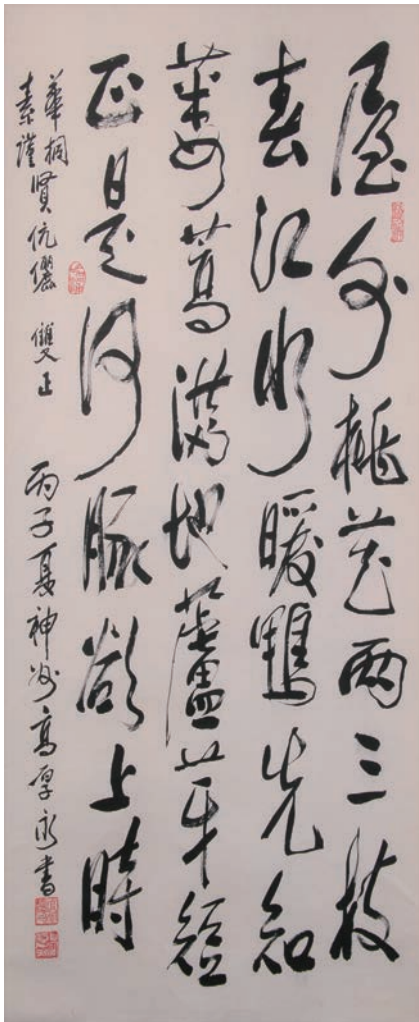 屋外桃花两三枝
春江水暖鴨先知
蔞蒿满地蘆芽短
正是河豚欲上時
華桐
素謹
賢伉儷 雙正 丙子夏神州高厚永書